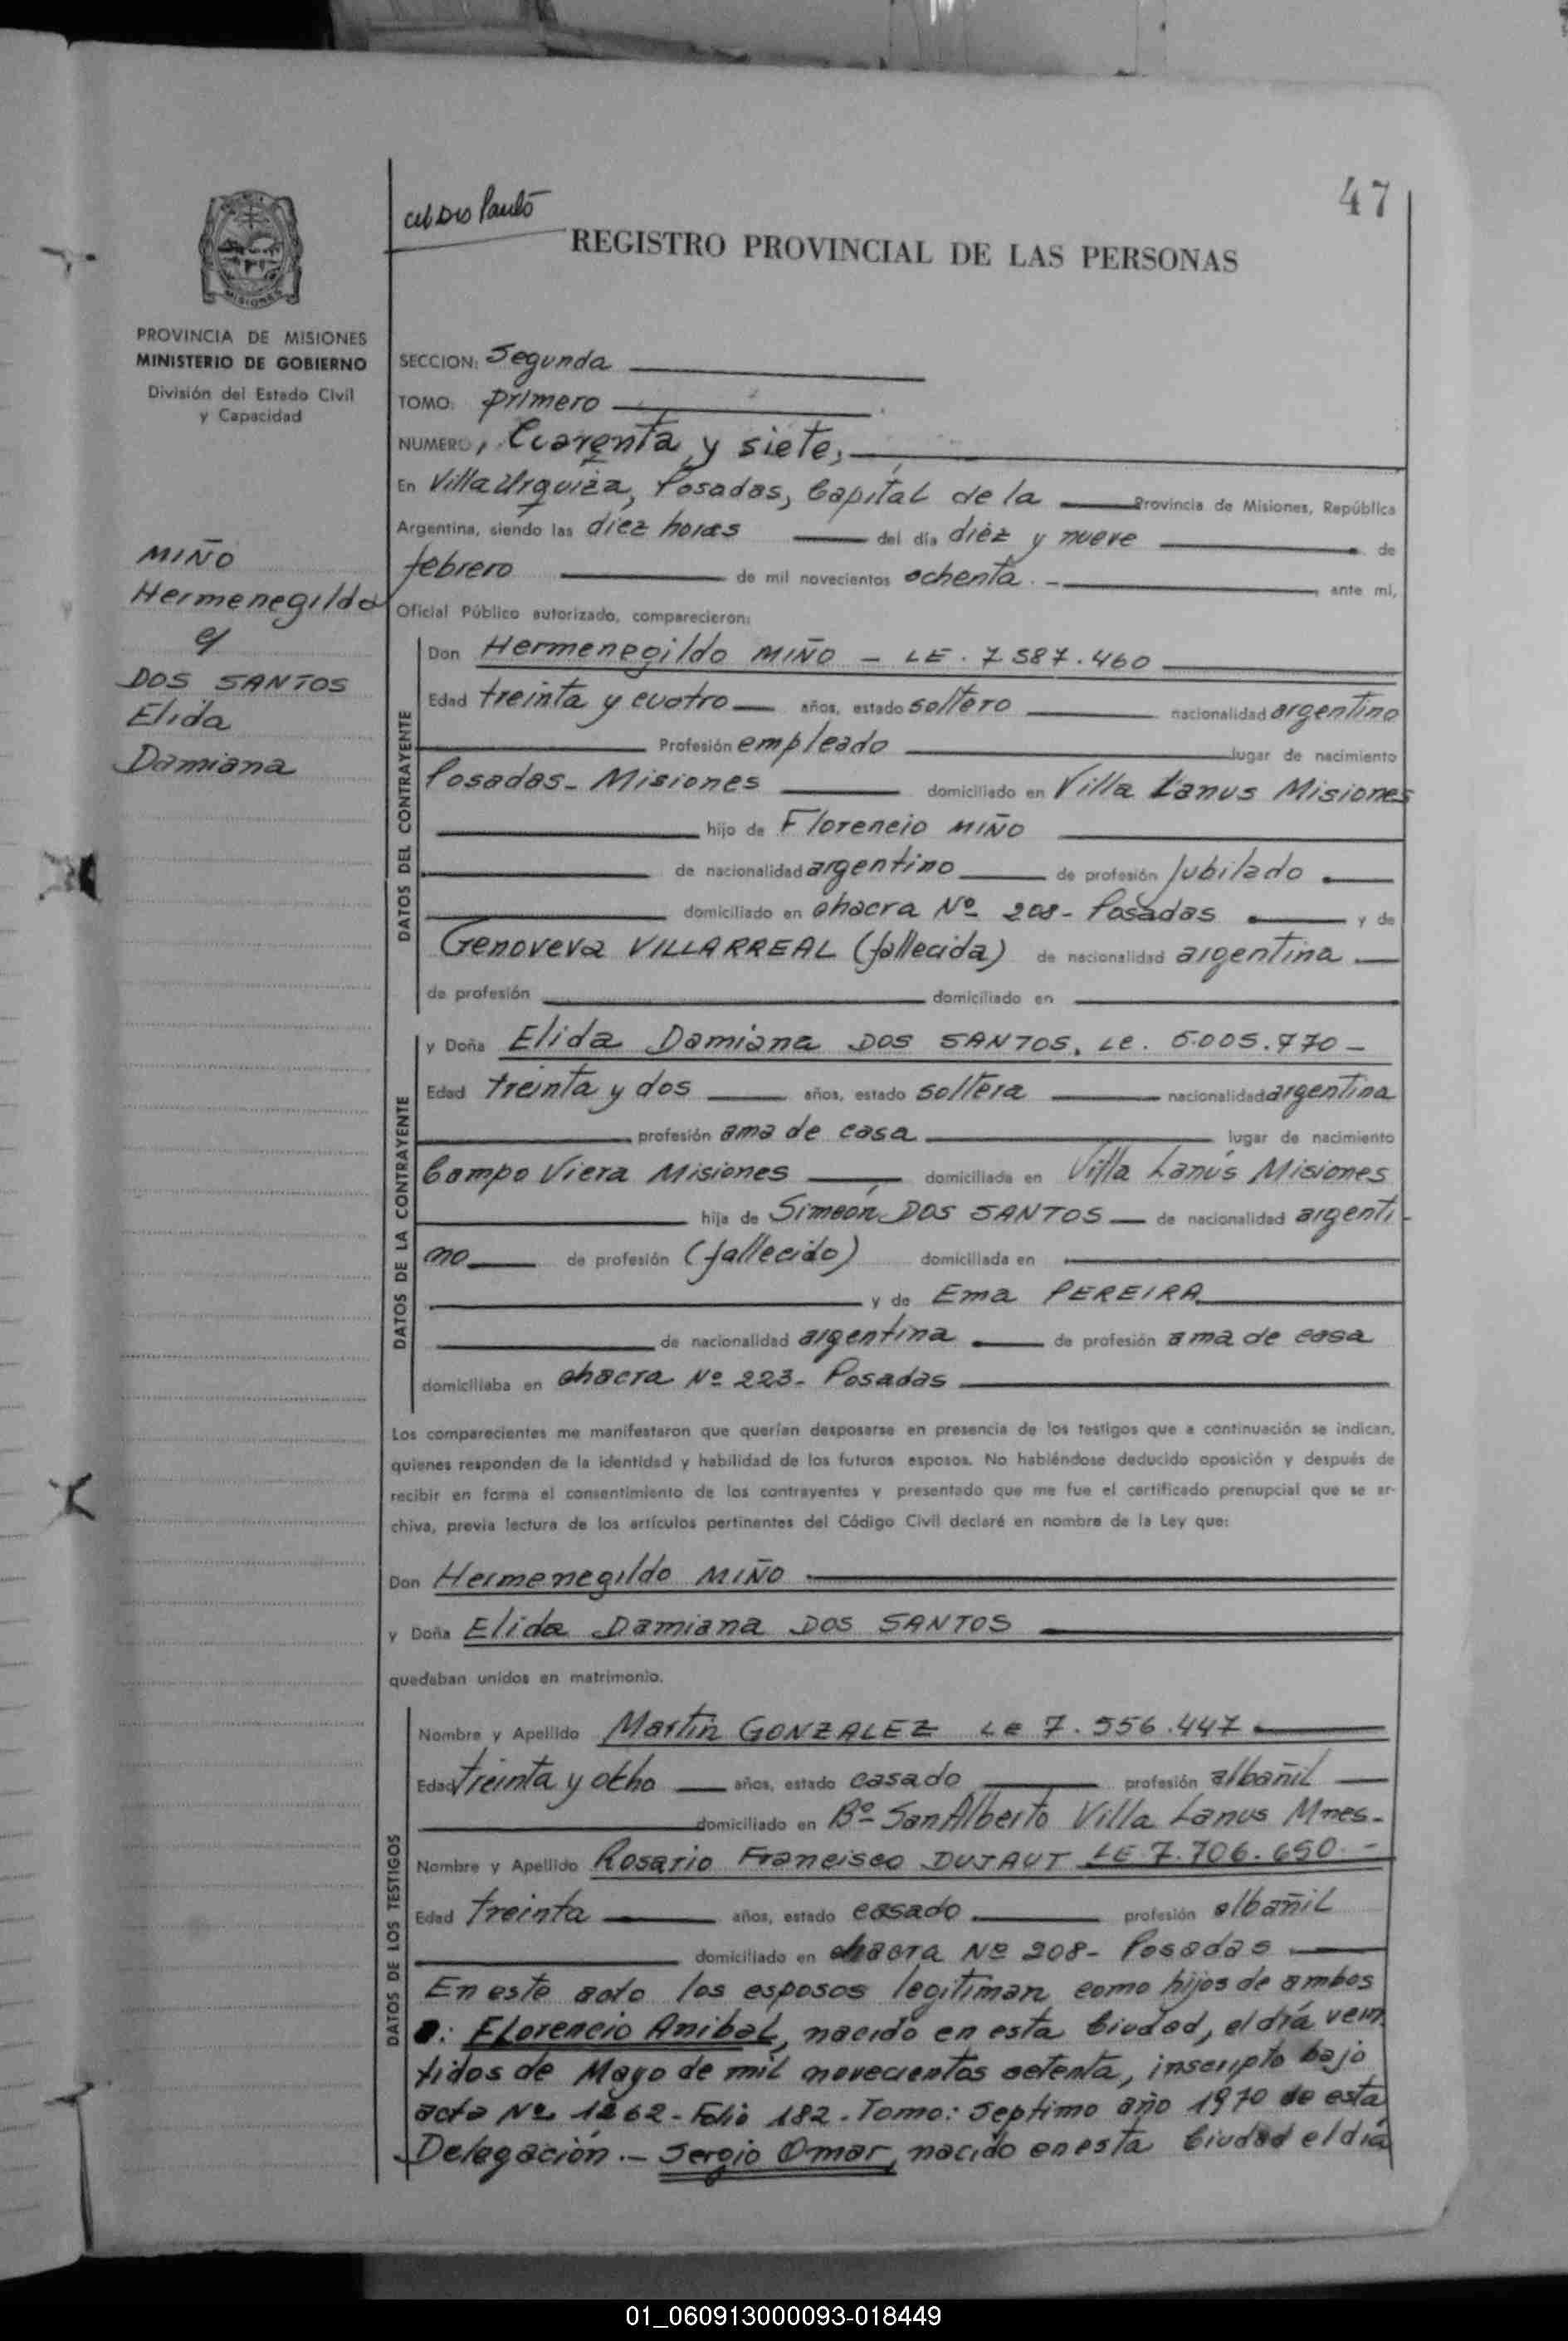 47
REGISTRO PROVINCIAL DE LAS PERSONAS
MISIONES
PROVINCIA DE MISIONES
MINISTERIO DE GOBIERNO
División del Estado Civil
y Capacidad
MIÑO
Hermenegildo
c/
DOS SANTOS
Elida
Damiana
SECCION: Segunda
TOMO: primero
NUMERO, Cuarenta y siete,
En Villa Urquiza, Posadas, Capital de la Provincia de Misiones, República
Argentina, siendo las diez horas del día diez y nueve de
febrero de mil novecientos ochenta.- ante mi,
Oficial Público autorizado, comparecieron:
DATOS DEL CONTRAYENTE
Don Hermenegildo MIÑO - LE. 7.587.460
Edad treinta y cuatro años, estado soltero nacionalidad argentino
Profesión empleado lugar de nacimiento
Posadas- Misiones domiciliado en Villa Lanus Misiones
hijo de Florencio MIÑO
de nacionalidad argentino de profesión Jubilado
domiciliado en chacra Nº 208- Posadas y de
Genoveva VILLARREAL (fallecida) de nacionalidad argentina
de profesión domiciliado en
DATOS DE LA CONTRAYENTE
y Doña Elida Damiana DOS SANTOS, LE. 5.005.770-
Edad treinta y dos años, estado soltera nacionalidad argentina
profesión ama de casa lugar de nacimiento
Campo Viera Misiones domiciliada en Villa Lanús Misiones
hija de Simeón DOS SANTOS de nacionalidad argenti-
no de profesión (fallecido) domiciliada en
y de Ema PEREIRA
de nacionalidad argentina de profesión ama de casa
domiciliaba en chacra Nº 223- Posadas
Los comparecientes me manifestaron que querían desposarse en presencia de los testigos que a continuación se indican,
quienes responden de la identidad y habilidad de los futuros esposos. No habiéndose deducido oposición y después de
recibir en forma el consentimiento de los contrayentes y presentado que me fue el certificado prenupcial que se ar-
chiva, previa lectura de los artículos pertinentes del Código Civil declaré en nombre de la Ley que:
Don Hermenegildo MIÑO
y Doña Elida Damiana DOS SANTOS
quedaban unidos en matrimonio.
DATOS DE LOS TESTIGOS
Nombre y Apellido Martín GONZALEZ LE 7.556.447
Edad treinta y ocho años, estado casado profesión albañil
domiciliado en Bº San Alberto Villa Lanus Mnes-
Nombre y Apellido Rosario Francisco DUJAUT LE 7.706.690.-
Edad treinta años, estado casado profesión albañil
domiciliado en chacra Nº 208- Posadas
En este acto los esposos legitiman como hijos de ambos
a: Florencio Anibal, nacido en esta Ciudad, el día vein
tidos de Mayo de mil novecientos setenta, inscripto bajo
acta Nº 1262- Folio 182. Tomo: Septimo año 1970 de esta
Delegación.- Sergio Omar, nacido en esta Ciudad el día
01_060913000093-018449